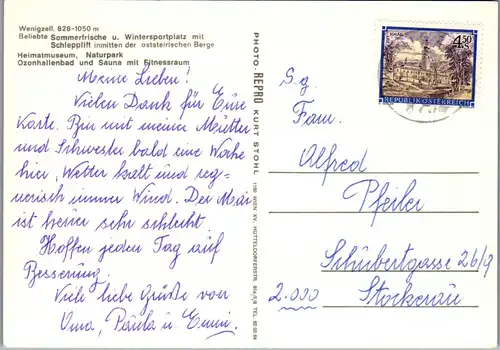 Wenigzell, 828-1050 m
Beliebte Sommerfrische u. Wintersportplatz mit
Schlepplift inmitten der oststeirischen Berge
Heimatmuseum, Naturpark
Ozonhallenbad und Sauna mit Fitnessraum
Meine Lieben!
Vielen Dank für Eure
Karte. Bin mit meiner Mutter
und Schwester bald eine Woche
hier, Wetter kalt und reg-
nerisch immer Wind. Der Mai
ist heuer sehr schlecht.
Hoffen jeden Tag auf
Besserung.
Viele liebe Grüße von
Oma, Paula u. Emmi.
PHOTO-REPRO KURT STOHL
1150 WIEN XV, HÜTTELDORFERSTR.
4.50
S
REPUBLIK ÖSTERREICH
S.g.
Fam.
Alfred
Pfeiler
Schubertgasse 26/9
2.000 Stockerau